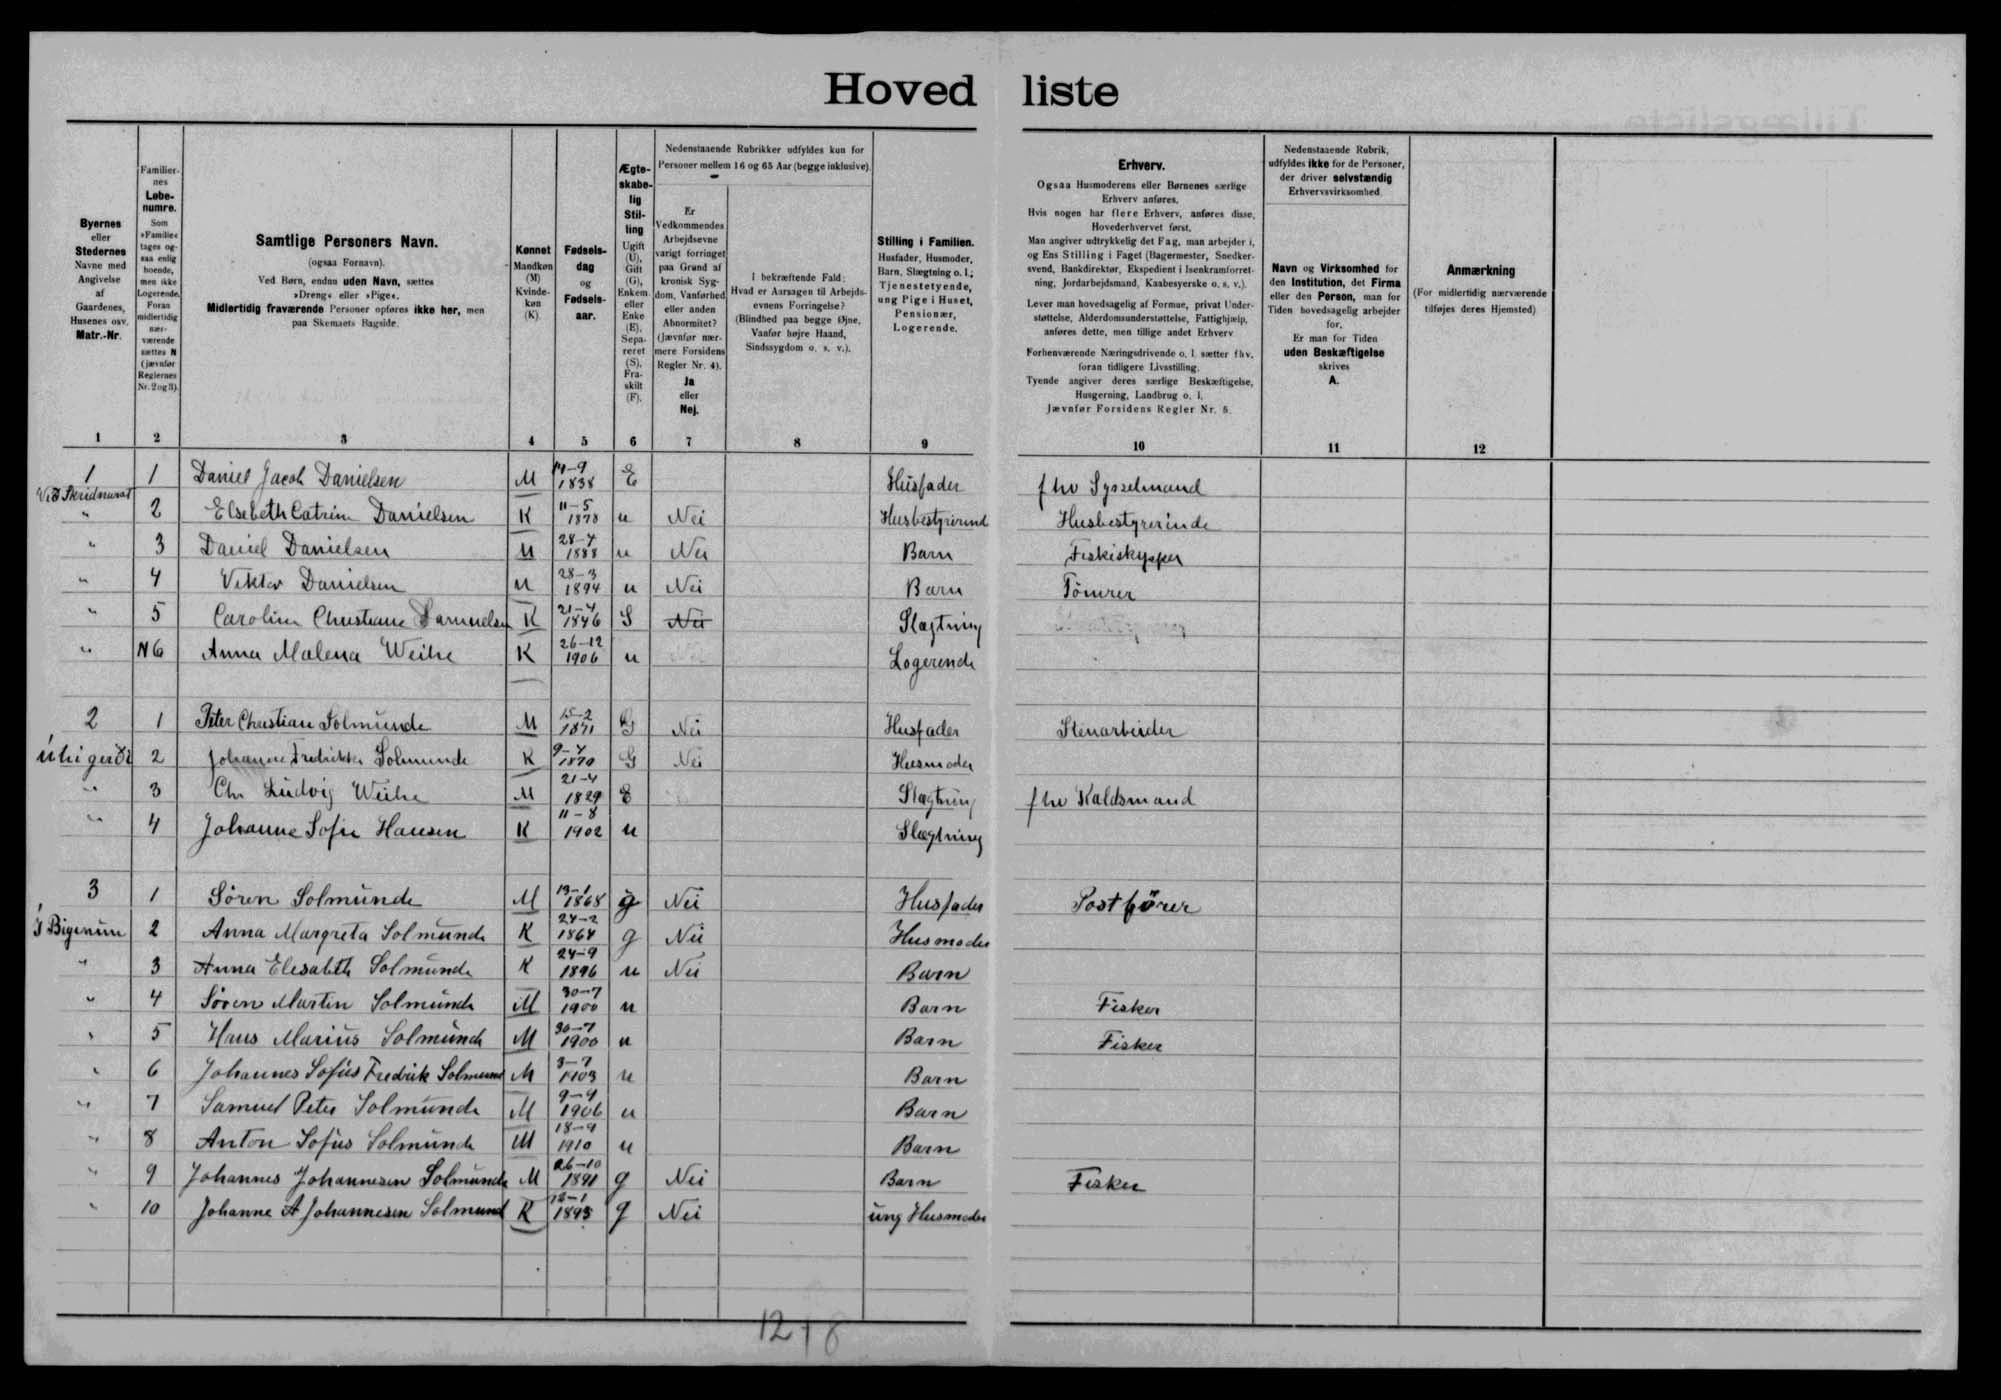 Hovedliste
Byernes
eller
Stedernes
Navne med
Angivelse
af
Gaardenes,
Husenes osv.
Matr.-Nr.
1
Familier-
nes
Løbe-
numre.
Som
»Familie«
tages og-
saa enlig
boende,
men ikke
Logerende.
Foran
midlertidig
nær-
værende
sættes N
(jævnfør
Reglernes
Nr. 2 og 3).
2
Samtlige Personers Navn.
(ogsaa Fornavn).
Ved Børn, endnu uden Navn, sættes
»Dreng« eller »Pige«.
Midlertidig fraværende Personer opføres ikke her, men
paa Skemaets Bagside.
3
Kønnet
Mandkøn
(M)
Kvinde-
køn
(K).
4
Fødsels-
dag
og
Fødsels-
aar.
5
Ægte-
skabe-
lig
Stil-
ling
Ugift
(U),
Gift
(G),
Enkem.
eller
Enke
(E),
Sepa-
reret
(S),
Fra-
skilt
(F).
6
Nedenstaaende Rubrikker udfyldes kun for
Personer mellem 16 og 65 Aar (begge inklusive).
Er
Vedkommendes
Arbejdsevne
varigt forringet
paa Grund af
kronisk Syg-
dom, Vanførhed
eller anden
Abnormitet?
(Jævnfør nær-
mere Forsidens
Regler Nr. 4).
Ja
eller
Nej.
7
I bekræftende Fald:
Hvad er Aarsagen til Arbejds-
evnens Forringelse?
(Blindhed paa begge Øjne,
Vanfør højre Haand,
Sindssygdom o. s. v.).
8
Stilling i Familien.
Husfader, Husmoder,
Barn, Slægtning o. l.;
Tjenestetyende,
ung Pige i Huset,
Pensionær,
Logerende.
9
Erhverv.
Ogsaa Husmoderens eller Børnenes særlige
Erhverv anføres.
Hvis nogen har flere Erhverv, anføres disse,
Hovederhvervet først.
Man angiver udtrykkelig det Fag, man arbejder i,
og Ens Stilling i Faget (Bagermester, Snedker-
svend, Bankdirektør, Ekspedient i Isenkramforret-
ning, Jordarbejdsmand, Kaabesyerske o. s. v.).
Lever man hovedsagelig af Formue, privat Under-
støttelse, Alderdomsunderstøttelse, Fattighjælp,
anføres dette, men tillige andet Erhverv
Forhenværende Næringsdrivende o. l. sætter fhv.
foran tidligere Livsstilling.
Tyende angiver deres særlige Beskæftigelse,
Husgerning, Landbrug o. l.
Jævnfør Forsidens Regler Nr. 5.
10
Nedenstaaende Rubrik,
udfyldes ikke for de Personer,
der driver selvstændig
Erhvervsvirksomhed.
Navn og Virksomhed for
den Institution, det Firma
eller den Person, man for
Tiden hovedsagelig arbejder
for.
Er man for Tiden
uden Beskæftigelse
skrives
A.
11
Anmærkning
(For midlertidig nærværende
tilføjes deres Hjemsted)
12
1 1 Daniel Jacob Danielsen M 14-9 1838 E Husfader fhv Sysselmand
Við Skridnurat
" 2 Elsebeth Catrine Danielsen K 11-5 1878 u Nei Husbestyrerind Husbestyrerinde
" 3 Daniel Danielsen M 28-4 1888 u Nei Barn Fiskiskypper
" 4 Viktor Danielsen M 28-3 1894 u Nei Barn Tömrer
" 5 Caroline Christiane Danielsen K 21-4 1846 S Nei Slægtning
" N6 Anna Malena Weihe K 26-12 1906 u Logerende
2 1 Peter Christian Solmunde M 15-2 1871 G Nei Husfader Stenarbeider
úti i gerði 2 Johanne Fredrikka Solmunde K 9-4 1870 G Nei Husmoder
" 3 Chr Ludvig Weihe M 21-4 1829 E Slægtning fhv Kaldsmand
" 4 Johanne Sofie Hansen K 11-8 1902 u Slægtning
3 1 Sören Solmunde M 13-1 1868 g Nei Husfader Postförer
Í Bigenun 2 Anna Margreta Solmunde K 24-2 1864 g Nei Husmoder
" 3 Anna Elesabeth Solmunde K 24-9 1896 u Nei Barn
" 4 Sören Martin Solmunde M 30-7 1900 u Barn Fisker
" 5 Hans Marius Solmunde M 30-7 1900 u Barn Fisker
" 6 Johannes Sofus Fredrik Solmunde M 3-7 1903 u Barn
" 7 Samuel Peter Solmunde M 9-4 1906 u Barn
" 8 Anton Sofus Solmunde M 18-9 1910 u Barn
" 9 Johannes Johannesen Solmunde M 26-10 1891 g Nei Barn Fisker
" 10 Johanne A Johannesen Solmund K 12-1 1895 g Nei ung Husmoder
12+8